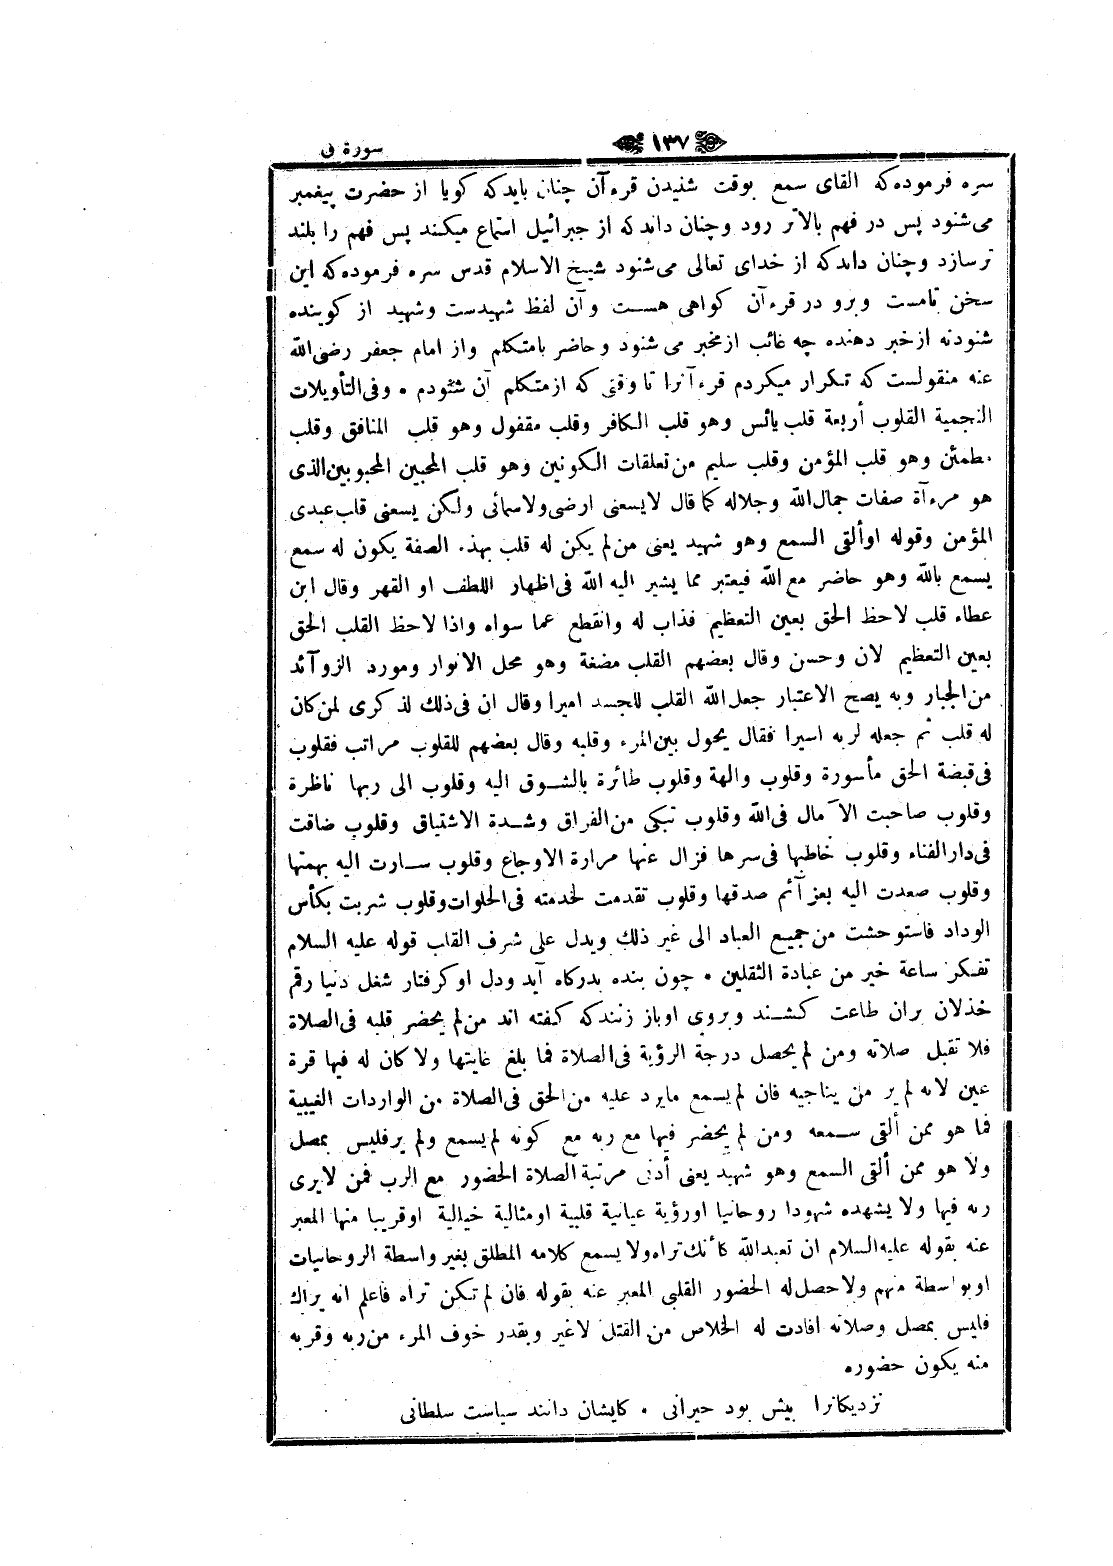 سورة ق
١٣٧
سره فرموده که القای سمع بوقت شنیدن قرءآن چنان باید که کویا از حضرت پیغمبر
می شنود پس در فهم بالاتر رود وچنان داند که از جبرائیل استماع میکند پس فهم را بلند
ترسازد وچنان داند که از خدای تعالی می شنود شیخ الاسلام قدس سره فرموده که این
سخن تامست وبرو در قرءآن کواهی هست وآن لفظ شهیدست وشهید از کوینده
شنودنه از خبر دهنده چه غائب از مخبر می شنود وحاضر با متکلم واز امام جعفر رضی الله
عنه منقولست که تکرار میکردم قرءآنرا تا وقتی که از متکلم آن شنودم ٠ وفی التأویلات
النجمیة القلوب أربعة قلب یائس وهو قلب الکافر وقلب مقفول وهو قلب المنافق وقلب
مطمئن وهو قلب المؤمن وقلب سلیم من تعلقات الکونین وهو قلب المحبین المحبوبین الذی
هو مرءآة صفات جمال الله وجلاله کما قال لا یسعنی ارضی ولا سمائی ولکن یسعنی قلب عبدی
المؤمن وقوله اوألقی السمع وهو شهید یعنی من لم یکن له قلب بهذه الصفة یکون له سمع
یسمع بالله وهو حاضر مع الله فیعتبر مما یشیر الیه الله فی اظهار اللطف او القهر وقال ابن
عطاء قلب لاحظ الحق بعین التعظیم فذاب له وانقطع عما سواه واذا لاحظ القلب الحق
بعین التعظیم لان وحسن وقال بعضهم القلب مضغة وهو محل الانوار ومورد الزوآئد
من الجبار وبه یصح الاعتبار جعل الله القلب للجسد امیرا وقال ان فی ذلك لذکری لمن کان
له قلب ثم جعله لربه اسیرا فقال یحول بین المرء وقلبه وقال بعضهم للقلوب مراتب فقلوب
فی قبضة الحق مأسورة وقلوب والهة وقلوب طائرة بالشوق الیه وقلوب الی ربها ناظرة
وقلوب صاحبت الآمال فی الله وقلوب تبکی من الفراق وشدة الاشتیاق وقلوب ضاقت
فی دار الفناء وقلوب خاطبها فی سرها فزال عنها مرارة الاوجاع وقلوب سارت الیه بهمتها
وقلوب صعدت الیه بعزآئم صدقها وقلوب تقدمت لخدمته فی الخلوات وقلوب شربت بکأس
الوداد فاستوحشت من جمیع العباد الی غیر ذلك ویدل علی شرف القلب قوله علیه السلام
تفکر ساعة خیر من عبادة الثقلین ٠ چون بنده بدرکاه آید ودل او کرفتار شغل دنیا رقم
خذلان بران طاعت کشند وبروی اوباز زنند که کفته اند من لم یحضر قلبه فی الصلاة
فلا تقبل صلاته ومن لم یحصل درجة الرؤیة فی الصلاة فما بلغ غایتها ولا کان له فیها قرة
عین لانه لم یر من یناجیه فان لم یسمع ما یرد علیه من الحق فی الصلاة من الواردات الغیبیة
فما هو ممن ألقی سمعه ومن لم یحضر فیها مع ربه مع کونه لم یسمع ولم یر فلیس بمصل
ولا هو ممن ألقی السمع وهو شهید یعنی أدنی مرتبة الصلاة الحضور مع الرب فمن لا یری
ربه فیها ولا یشهده شهودا روحانیا او رؤیة عیانیة قلبیة او مثالیة خیالیة او قریبا منها المعبر
عنه بقوله علیه السلام ان تعبد الله کأنك تراه ولا یسمع کلامه المطلق بغیر واسطة الروحانیات
او بواسطة منهم ولا حصل له الحضور القلبی المعبر عنه بقوله فان لم تکن تراه فاعلم انه یراك
فلیس بمصل وصلاته افادت له الخلاص من القتل لا غیر وبقدر خوف المرء من ربه وقربه
منه یکون حضوره
نزدیکانرا بیش بود حیرانی ٠ کایشان دانند سیاست سلطانی